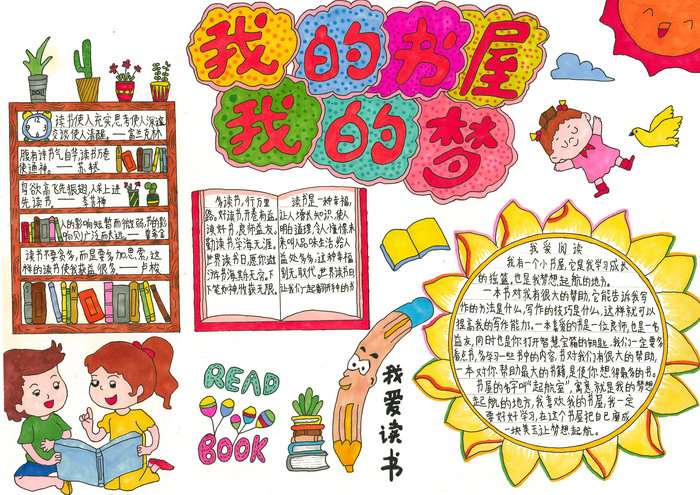 我的书屋
我的梦
读书使人充实,思考使人深邃
交谈使人清醒。——富兰克林
腹有诗书气自华,读书万卷
始通神。——苏轼
鸟欲高飞先振翅,人求上进
先读书。——李苦禅
人的影响短暂而微弱,书的影
响则广泛而深远。——普希金
读书不要贪多,而是要多加思索,这
样的读书使我获益很多。——卢梭
多读书,行万里
路。好读书,开卷有益。
读好书,良师益友。
勤读书,学海无涯。
世界读书日,愿你遨
游书海,乘胜无穷,下
下笔如神,收获无限。
读书是一种幸福,
让人增长知识,使人
明白道理,令人懂情未
来叫人品味生活,给人
益处多多,这种幸福
别无取代,世界读书日
让我们一起翻开神的书
我爱阅读
我有一个小书屋,它是我学习成长
的摇篮,也是我梦想起航的地方。
一本书对我有很大的帮助,它能告诉我写
作的方法是什么,写作的技巧是什么,这样就可以
提高我的写作能力。一本喜爱的书是一位良师,也是一名
益友,同时也是你打开智慧宝箱的钥匙。我们一定要多
看点书,多学习一些书中的内容,书对我们有很大的帮助,
一本对你帮助最大的书籍,是使你想得最多的书。
书屋的名字叫“起航室”,寓意就是我的梦想
起航的地方,我喜欢我的书屋,我一定
要好好学习,在这个书屋把自己磨成
一块美玉让梦想起航。
READ
BOOK
我爱读书